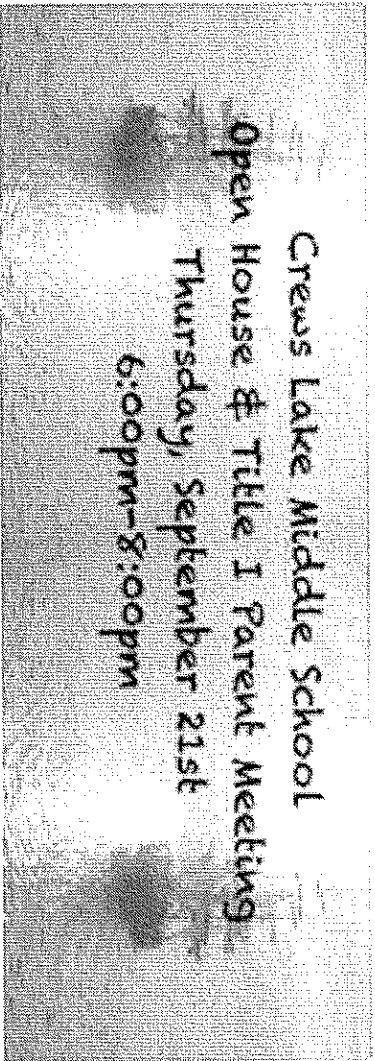 Crews Lake Middle School
Open House & Title I Parent Meeting
Thursday, September 21st
6:00pm-8:00pm